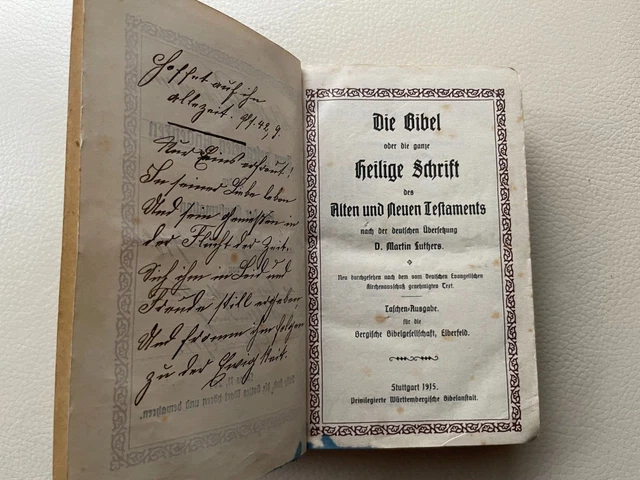 Hoffet auf ihn
allezeit. Ps. 42, 9.
Nur Eins erfreut!
In seiner Liebe leben
Und sein gemessen in
der Flucht der Zeit.
Sich ihm in Leid und
Freude still ergeben,
Und fromm ihm folgen
zu der Ewigkeit.
Die Bibel
oder die ganze
Heilige Schrift
des
Alten und Neuen Testaments
nach der deutschen Übersetzung
D. Martin Luthers.
Neu durchgesehen nach dem vom Deutschen Evangelischen
Kirchenausschuß genehmigten Text.
Taschen-Ausgabe.
für die
Bergische Bibelgesellschaft, Elberfeld.
Stuttgart 1915.
Privilegierte Württembergische Bibelanstalt.